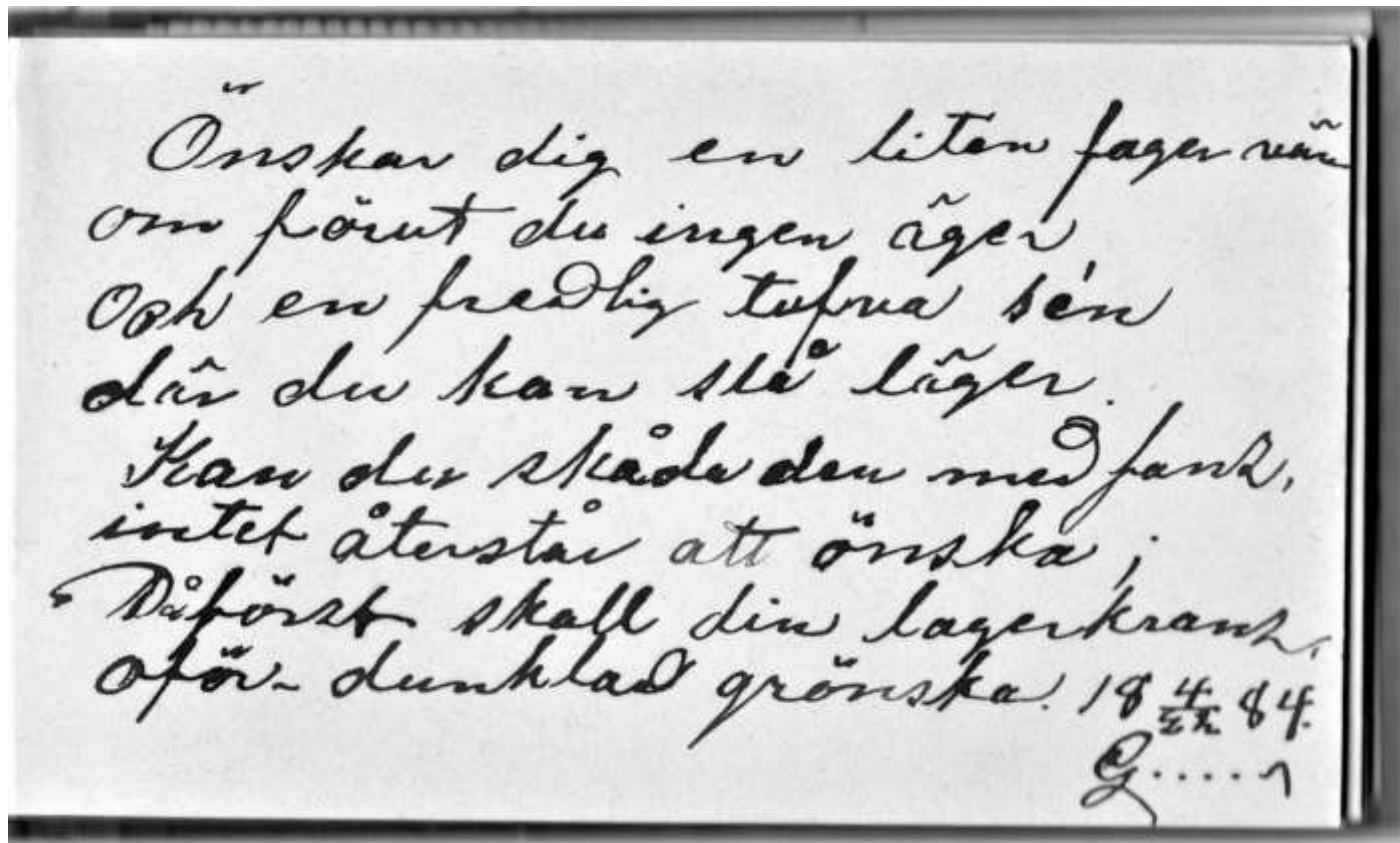 Önskar dig en liten fager vän
om förut du ingen äger,
Och en fredlig tufva sén
där du kan slå läger.
Kan du skåda den med fans,
intet återstår att önska;
Då först skall din lagerkrans,
oför-dunklad grönska. 18 4/22 84.
G.....n